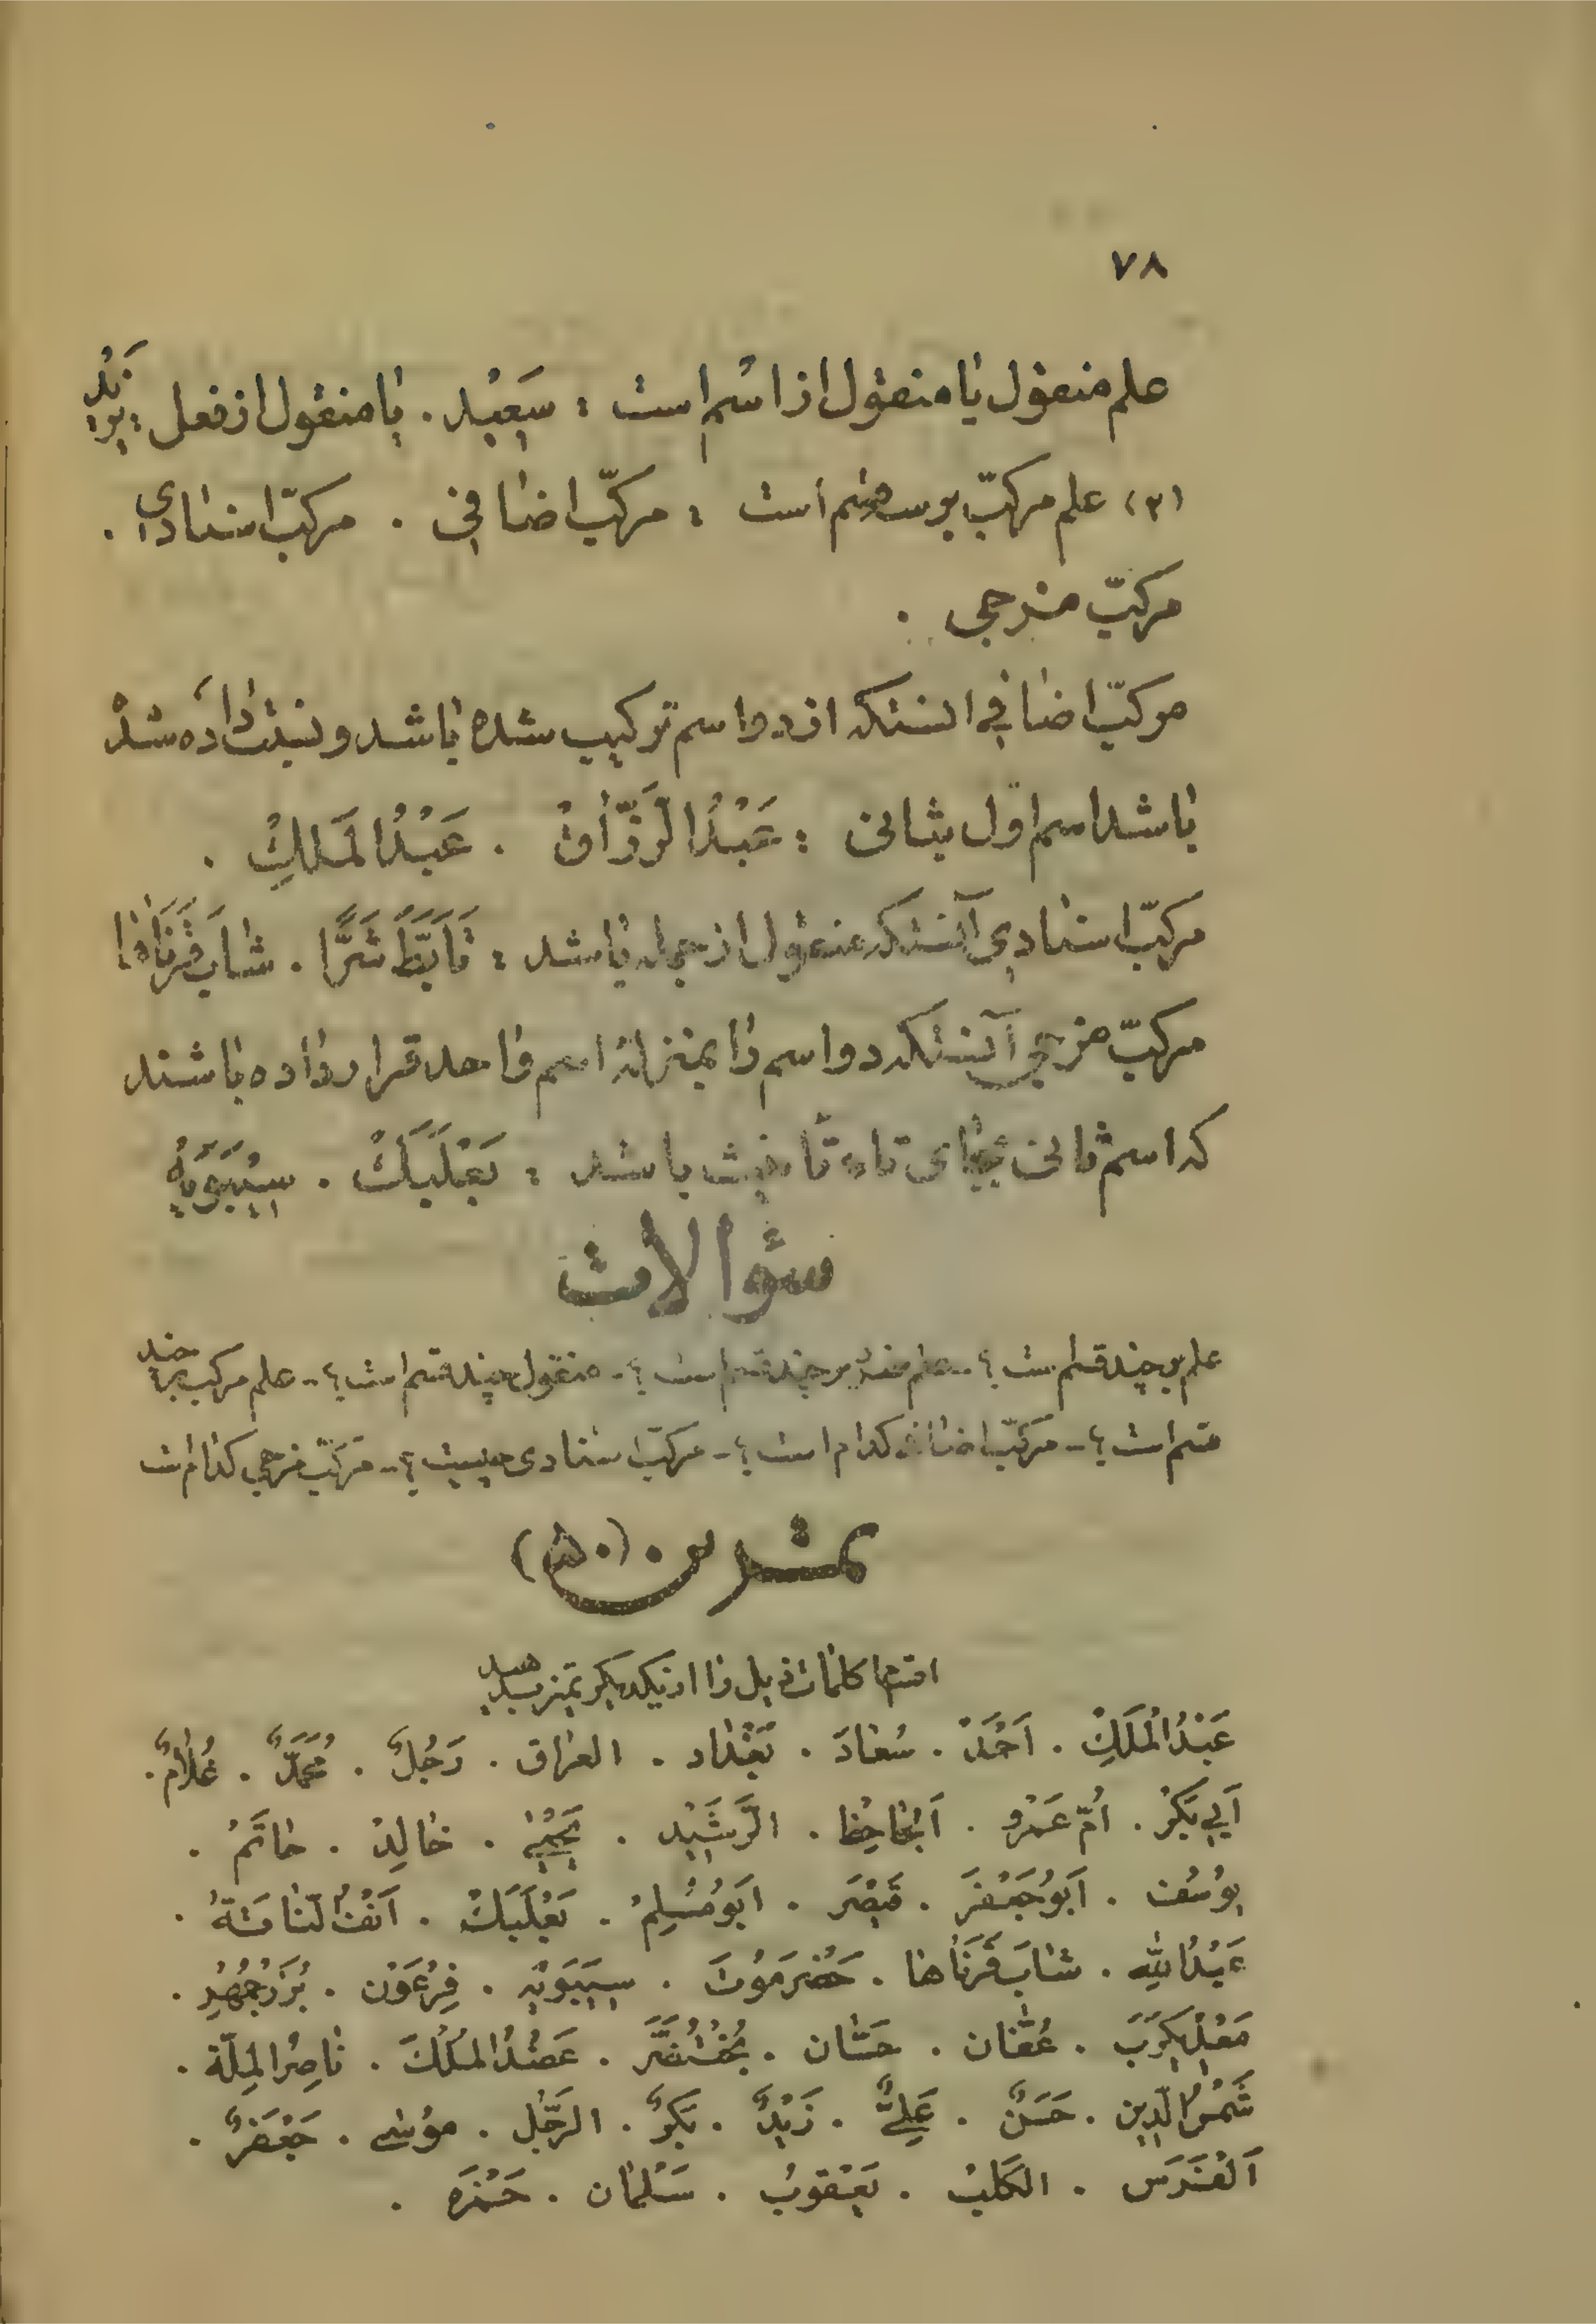 ۷۸
علم منقول یا منقول از اسم است : سَعِیْد . یا منقول از فعل : یَزِیْدُ
(۳) علم مرکبّ بر سه قسم است : مرکبّ اضافی . مرکبّ اسنادی .
مرکبّ مزجی .
مرکبّ اضافی آنستکه از دو اسم ترکیب شده باشد و نسبت داده شدْ
باشد اسم اوّل بثانی : عَبْدُ الرَزّٰاقْ . عَبْدُ الْمَلِكْ .
مرکبّ اسنادی آنستکه منقول از جمله باشد : تَأَبَّطَ شَرًّا . شٰابَ قَرْنٰاهٰا
مرکبّ مزجی آنستکه دو اسم را بمنزلهٔ اسم واحد قرار داده باشند
که اسم ثانی بجای تاء تأنیث باشد : بَعْلَبَكْ . سِیْبَوَیْهِ
سؤالات
علم بر چند قسم است ؟ - علم مفرد بر چند قسم است ؟ - منقول چند قسم است ؟ - علم مرکب بر چند
قسم است ؟ - مرکبّ اضافی کدام است ؟ - مرکبّ اسنادی چیست ؟ - مرکبّ مزجی کدام است
تمشرین (۵۰)
اقسام کلمات ذیل را از یکدیگر تمیز بدهید
عَبْدُ الْمَلَكِ . اَحْمَدْ . سُعٰادَ . بَغْدٰاد . العراق . رَجُلٌ . مُحَمَّدٌ . غُلٰامٌ .
اَبِي بَكْرْ . اُمّ عَمْرو . اَلْجٰاحِظ . الرَّشَیْدِ . یَحْیٰی . خٰالِدْ . حٰاتَمْ .
یُوسُف . اَبُو جَعْفَرَ . قَیْصَر . اَبُو مُسْلِمْ . بَعْلَبَكْ . اَنْفُ النّاقَةُ .
عَبْدُ اللهِ . شٰابَ قَرْنٰاهٰا . حَضْرَمَوْتَ . سِیبَوَیْهِ . فِرْعَوْن . بُزَرْجُمْهُرِ .
مَعْدِیكَرَبَ . عُثْمٰان . حَسّٰان . بُخْتُنَصَّر . عَضُدُ المُلْكَ . نٰاصِرُ المِلّة .
شَمْسُ الدّین . حَسَنٌ . عَلِيٌّ . زَیْدٌ . بَكْرٌ . الرَّجُل . مُوسٰی . جَعْفَرٌ .
اَلْفَرَس . الكَلْبُ . یَعْقوبُ . سَلْمٰان . حَمْزَه .